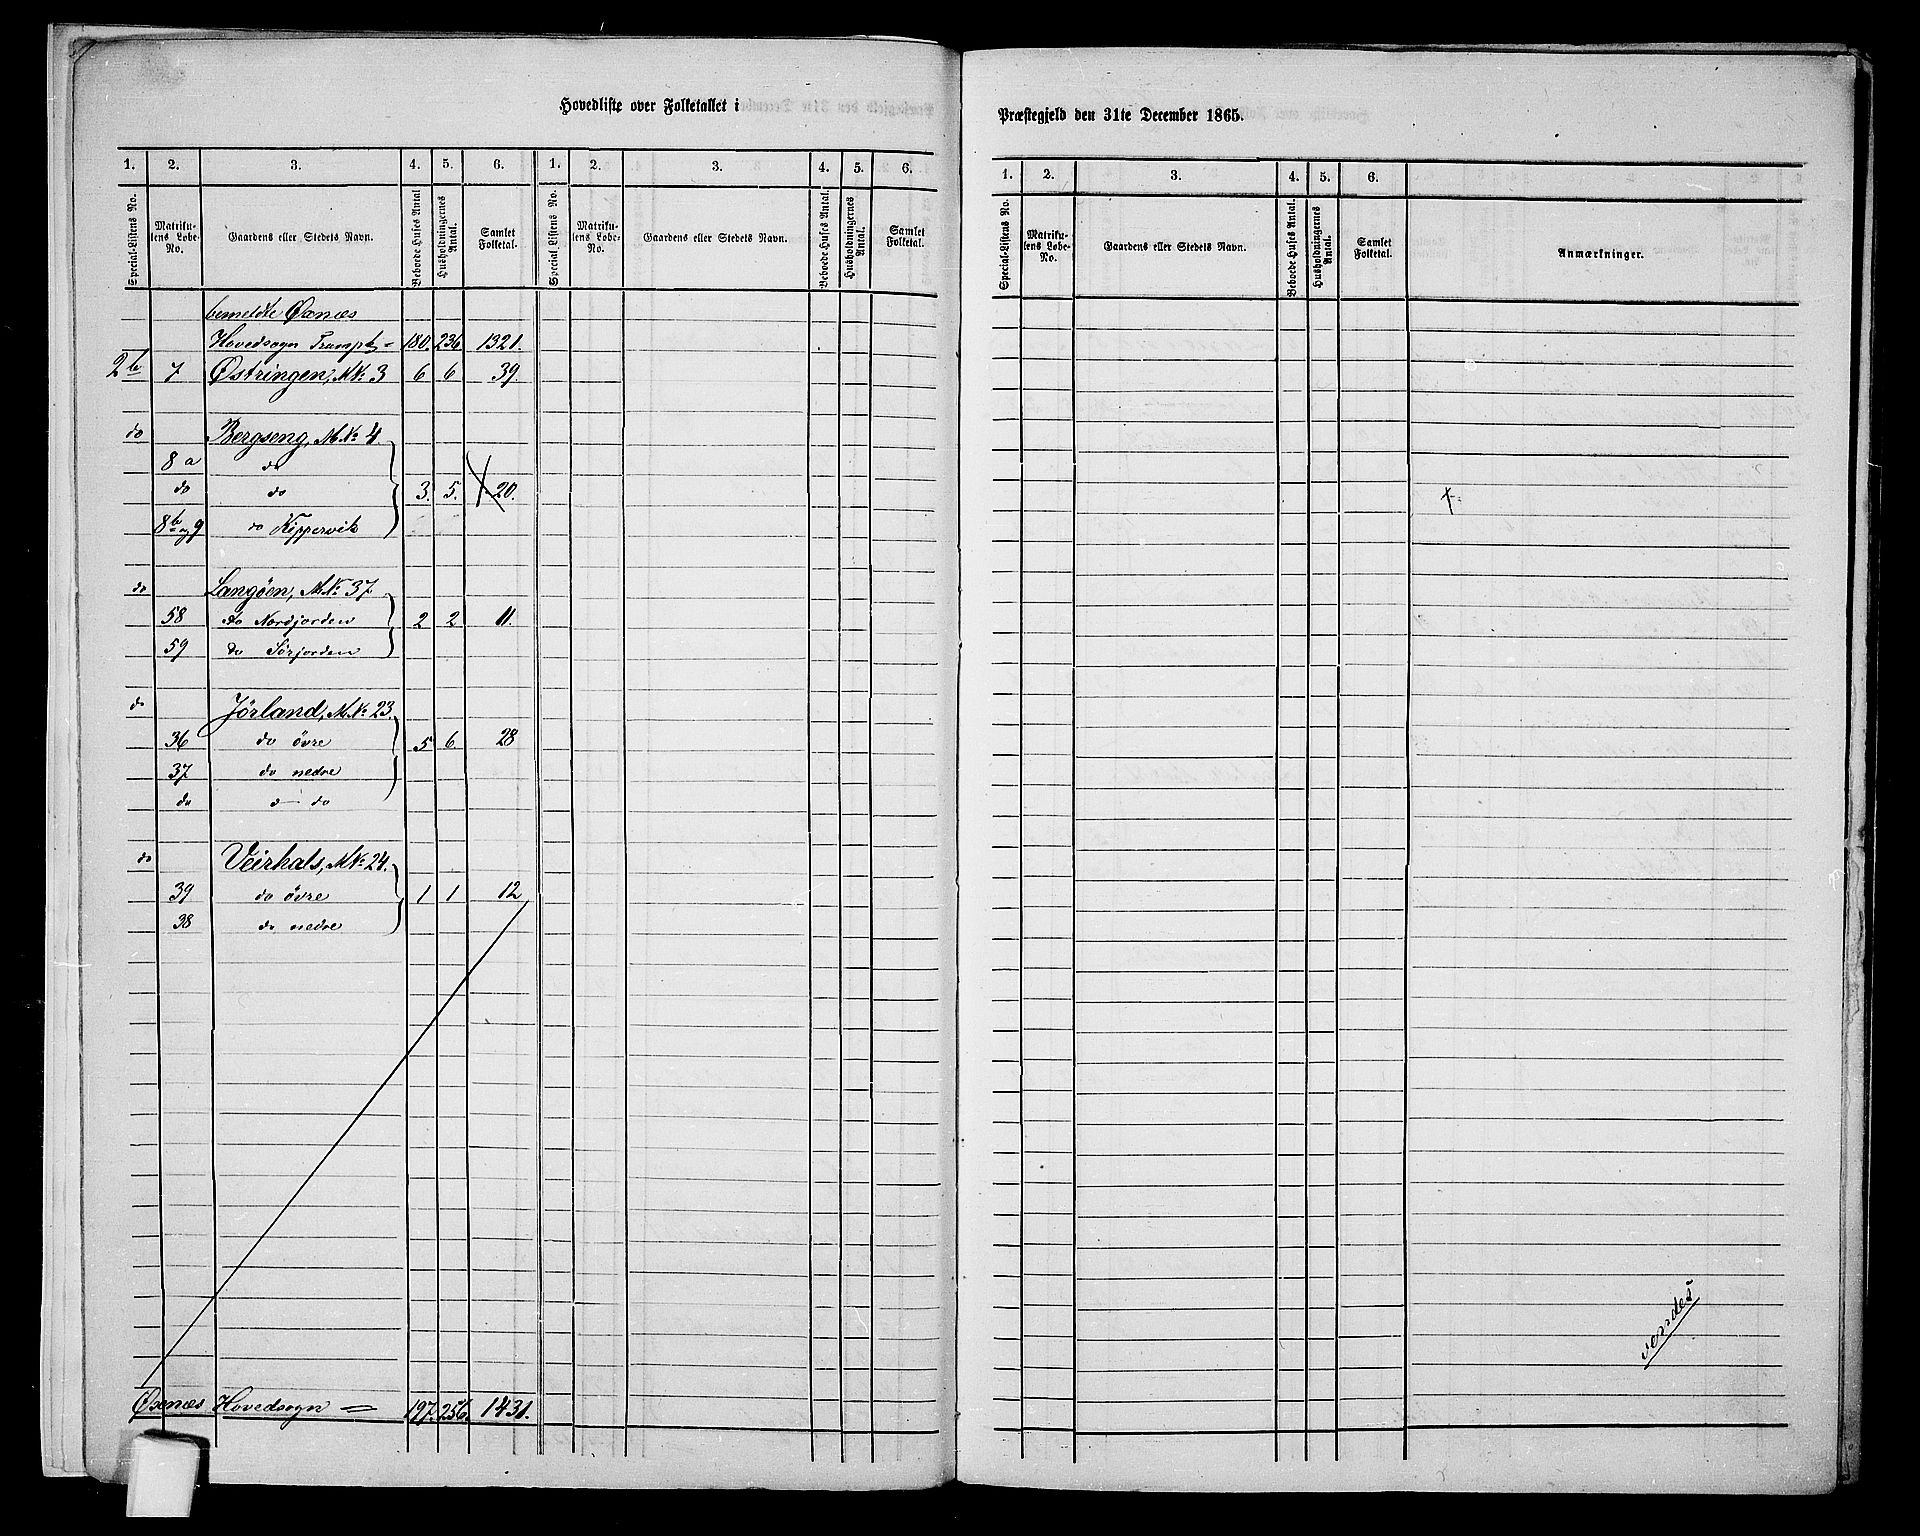 Hovedliste over Folketallet i
Præstegjeld den 31te December 1865.
1. 2. 3. 4. 5. 6. 1. 2. 3. 4. 5. 6.
Special-Listens No. Matrikulens Løbe-No. Gaardens eller Stedets Navn. Beboede Huses Antal Husholdningernes Antal. Samlet Folketal. Special-Listens No. Matrikulens Løbe-No. Gaardens eller Stedets Navn. Beboede Huses Antal. Husholdningernes Antal. Samlet Folketal.
bemeldte Øxnæs
Hovedsogn Transpt = 180. 236 1321.
2b 7 Østringen, M.No. 3 6 6 39
do Bergseng, M.No. 4.
8 a do
do do 3. 5. X 20.
8b og 9 do Kippervik
do Langöen, M.No. 37
58 do Nordjorden 2 2 11.
59 do Sörjorden
do Jörland, M.No. 23.
36 do övre 5 6 28
37 do nedre
do d— do
do Veirhals, M.No. 24.
39 do övre 1 1 12
38 do nedre
Øxnæs Hovedsogn = 197. 256. 1431.
1. 2. 3. 4. 5. 6.
Special-Listens No. Matrikulens Løbe-No. Gaardens eller Stedets Navn. Beboede Huses Antal. Husholdningernes Antal. Samlet Folketal. Anmærkninger.
vendes